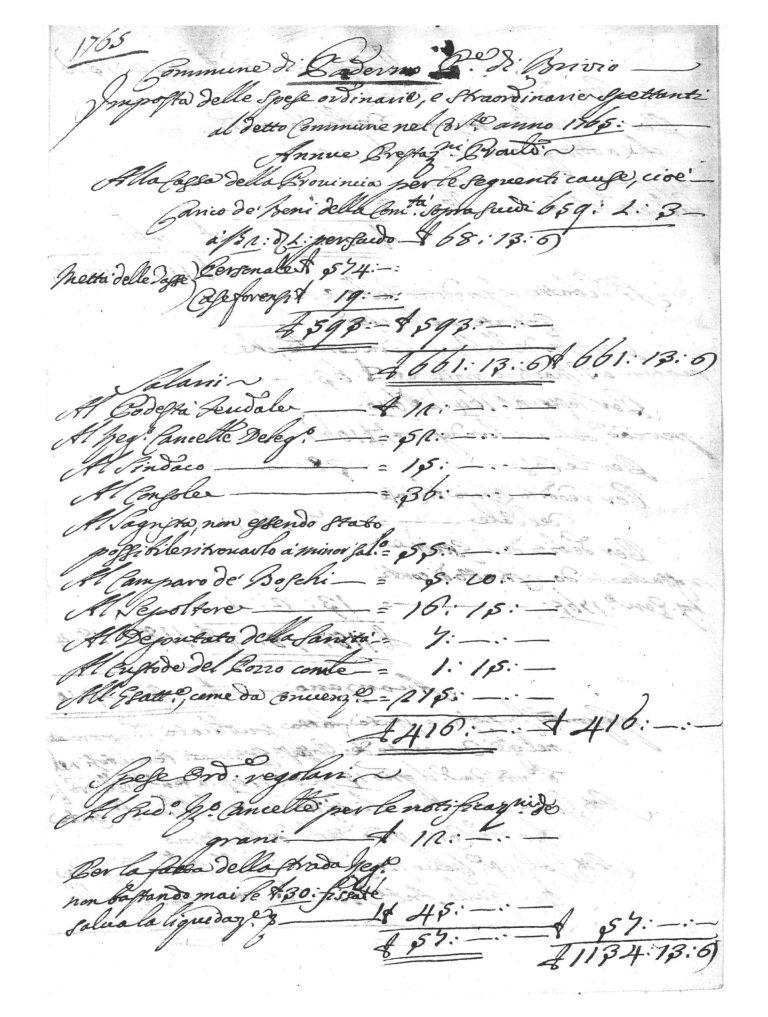 1765
Commune di Paderno P.e di Brivio
Imposta delle spese ordinarie, e straordinarie spettanti
al detto Commune nel Cor.te anno 1765:
Annue Prestaz.ni
Alla Cassa della Provincia per le seguenti cause, cioè
Carico de Beni della Com.tà sopra scudi 659: L: 3
per saldo £ 68: 13: 6
Mettà delle Tasse Personale £ 574: —:
Case forensi £ 19: —:
£ 593: — £ 593: —: —
£ 661: 13: 6 £ 661: 13: 6
Salarii
Al Podestà feudale £ 12: —: —
Al Reg.o Cancell.e Deleg.o = 52: —: —
Al Sindaco = 15: —: —
Al Console = 36: —: —
Al Sagrista, non essendo stato
possibile ritrovarlo a minor sal.o = 55: —: —
Al Camparo de Boschi = 5: 10: —
Al Sepoltore = 16: 15: —
Al Deputato della Sanità = 7: —: —
Al Custode del Pozzo com.le = 1: 15: —
All' Esatt.e, come da Convenz.e = 215: —: —
£ 416: —: — £ 416: —: —
Spese Ord.e regolari
Al sud.o R.o Cancell.e per le notificaz.ni de
grani £ 12: —: —
Per la fatta della strada Reg.a
non bastando mai le £ 30: fissate
salva la liquidaz.e £ 45: —: —
£ 57: —: — £ 57: —: —
£ 1134: 13: 6